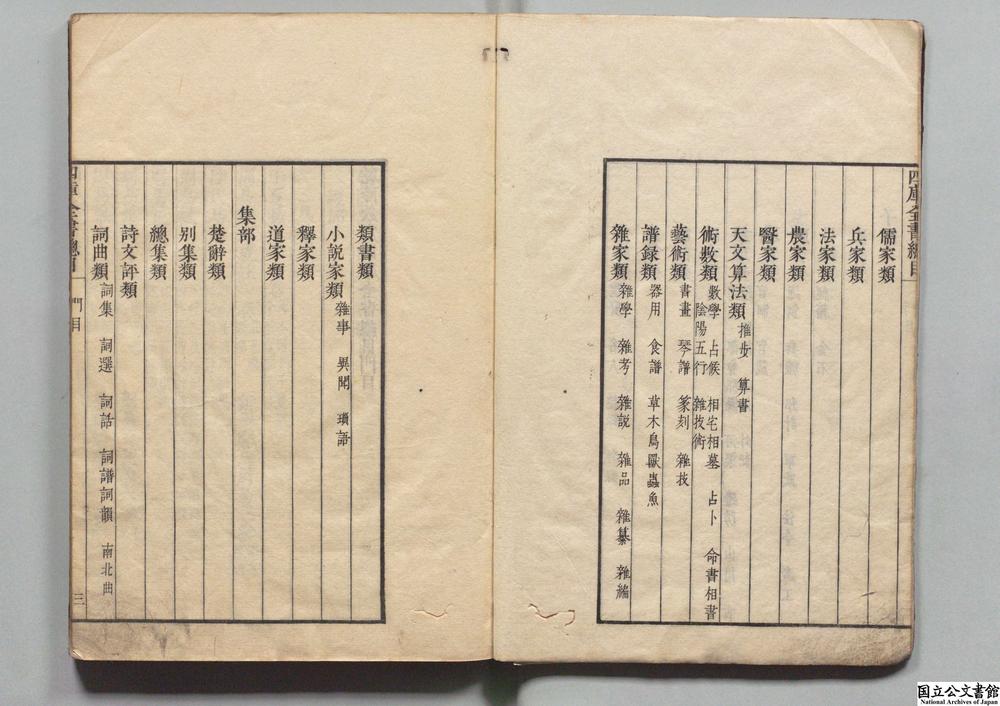 四庫全書總目
儒家類
兵家類
法家類
農家類
醫家類
天文算法類 推步 算書
術數類 數學 占候 相宅相墓 占卜 命書相書 陰陽五行 雜技術
藝術類 書畫 琴譜 篆刻 雜技
譜録類 器用 食譜 草木鳥獸蟲魚
雜家類 雜學 雜考 雜説 雜品 雜纂 雜編
類書類
小説家類 雜事 異聞 瑣語
釋家類
道家類
集部
楚辭類
别集類
總集類
詩文評類
詞曲類 詞集 詞選 詞話 詞譜詞韻 南北曲
四庫全書總目 門目 三
国立公文書館
National Archives of Japan